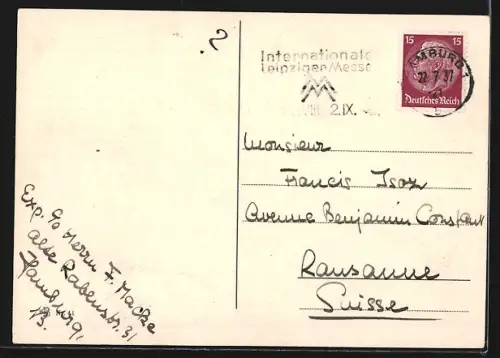 2
Internationale
Leipziger Messe
VIII. 2.IX.
15 15
HAMBURG 1
22.7.37
Deutsches Reich
Monsieur
Francis Isoz
Avenue Benjamin Constant
Lausanne
Suisse
Exp. Go Herrn F. Macke
alte Rabenstr. 31
Hamburg,
13.